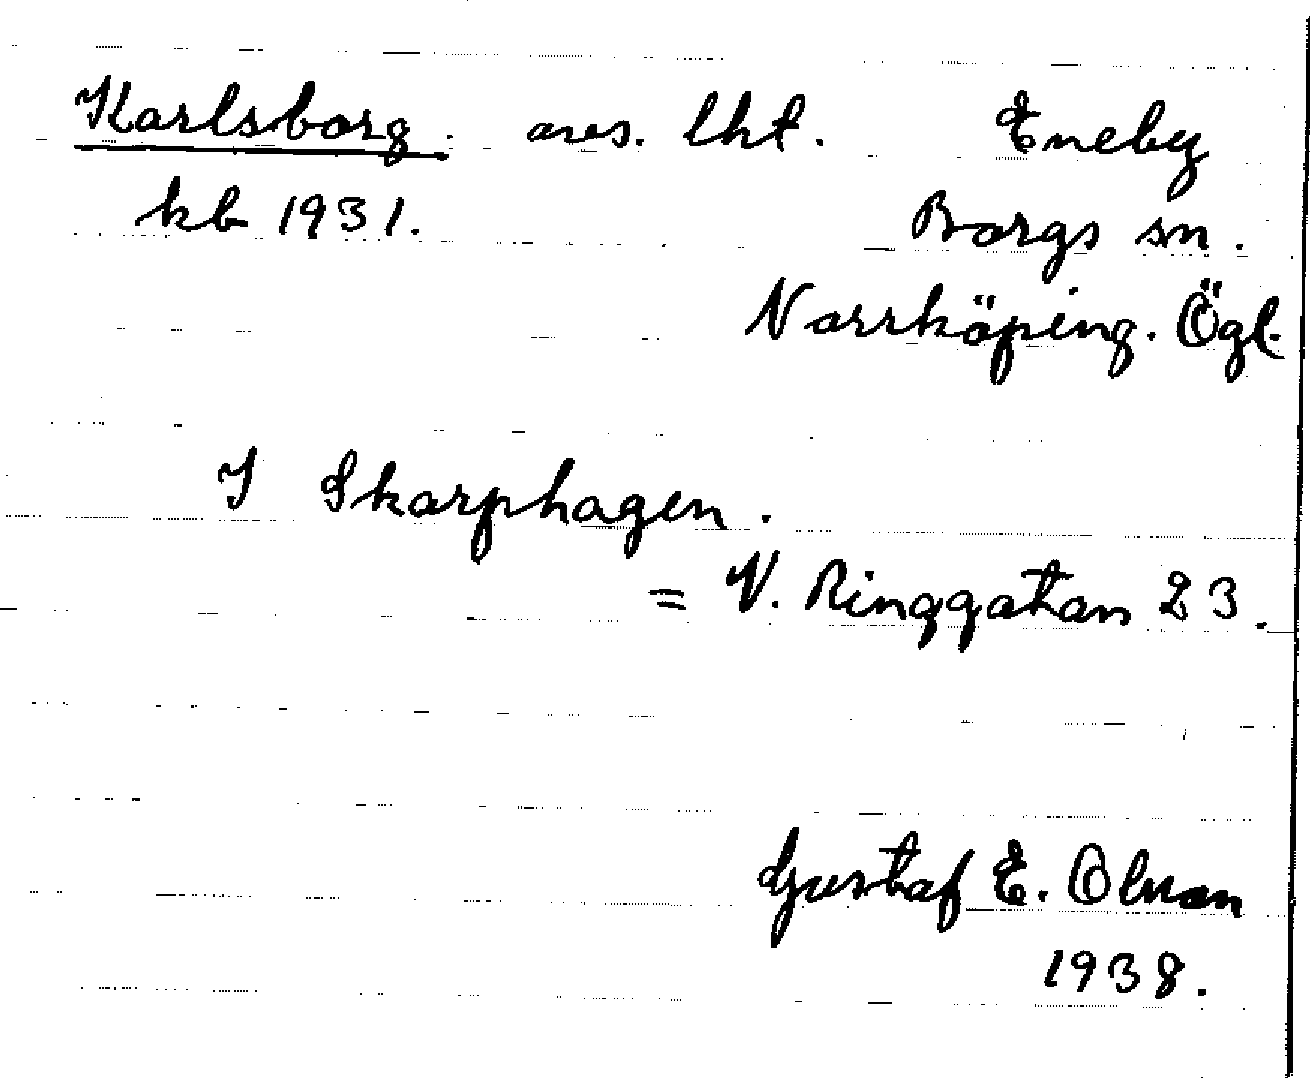 Karlsborg. avs. lht. Eneby
kb 1931. Borgs sn.
Norrköping. Ögl.
I Skarphagen.
= V. Ringgatan 23.
Gustaf E. Olsson
1938.